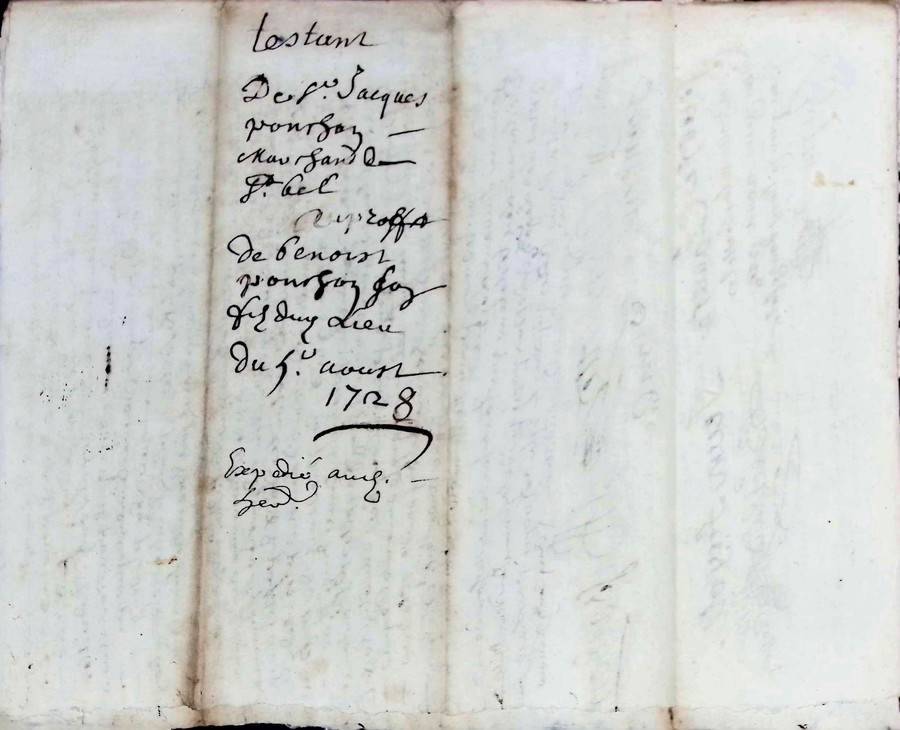 testam
De s.r Jacques
ponchon
Marchand de
S.t bel
au proffit
de benoist
ponchon son
filz dud Lieu
du 5.e aoust
1728
Expedié aud.
hered.